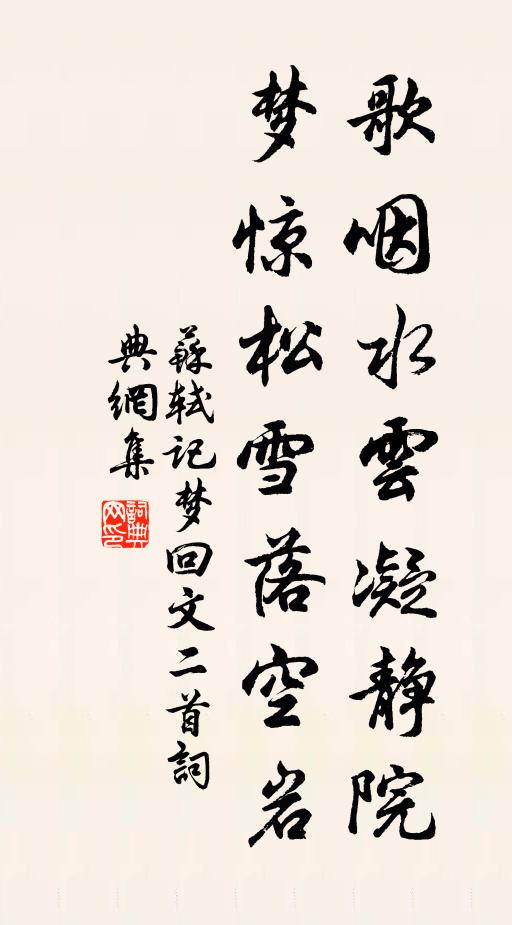 歌咽水雲凝静院
梦惊松雪落空岩
蘇軾记梦回文二首詞
典網集
詞典网印